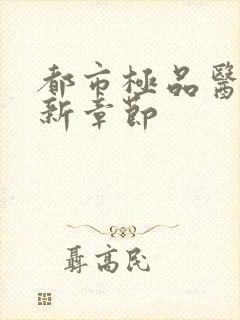 都市極品醫
新章節
聶高民